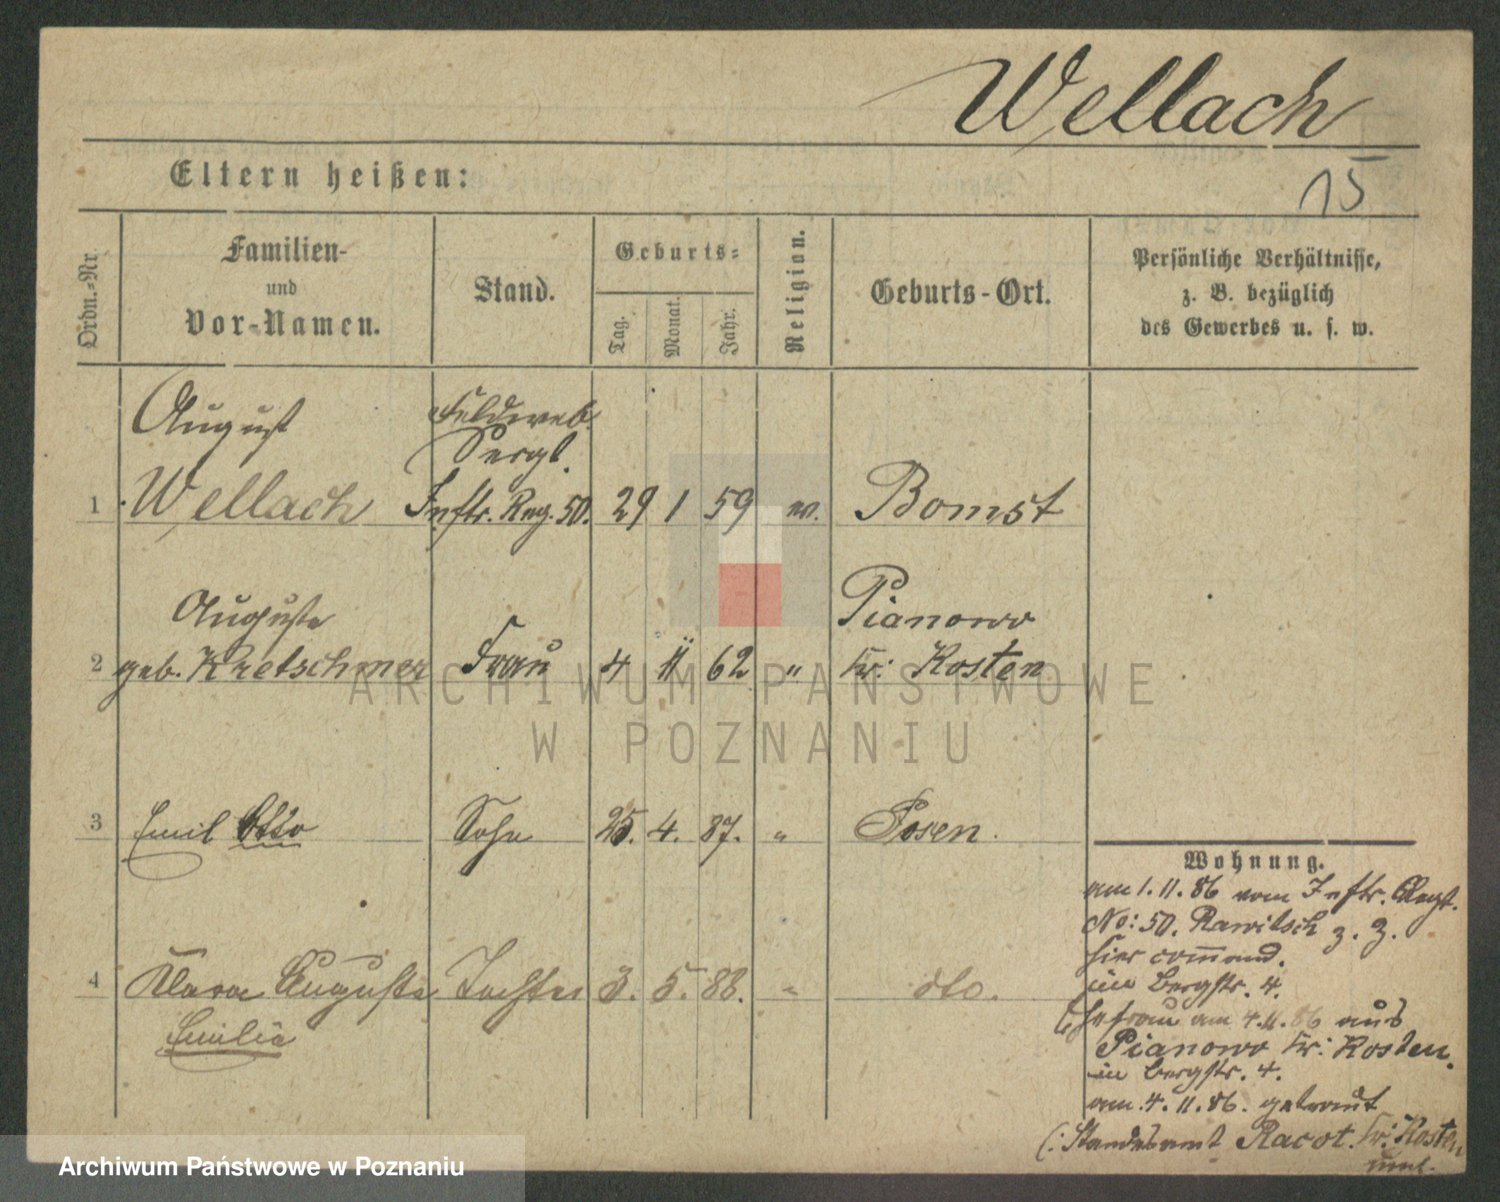 Wellach
15
Eltern heißen:
Ordn.-Nr.
Familien-
und
Vor-Namen.
Stand.
Geburts-
Tag.
Monat.
Jahr.
Religion.
Geburts-Ort.
Persönliche Verhältnisse,
z. B. bezüglich
des Gewerbes u. s. w.
August
Feldweb.
Sergt.
1 Wellach Inftr. Reg. 50. 29 1 59 ev. Bomst
Auguste
Pianowo
2 geb. Kretschmer Frau 4 11 62 " Kr: Kosten
3 Emil Otto Sohn 25. 4. 87. " Posen.
4 Klara Auguste Tochter 3. 5. 88. " dto.
Emilie
Wohnung.
am 1. 11. 86 vom Inftr. Regt.
No: 50. Rawitsch z. Z.
hier command.
in Bergstr. 4.
Ehefrau am 4. 11. 86 aus
Pianowo Kr: Kosten.
in Bergstr. 4.
am 4. 11. 86. getraut
(: Standesamt Racot. Kr: Kosten
ARCHIWUM PAŃSTWOWE
W POZNANIU
Archiwum Państwowe w Poznaniu